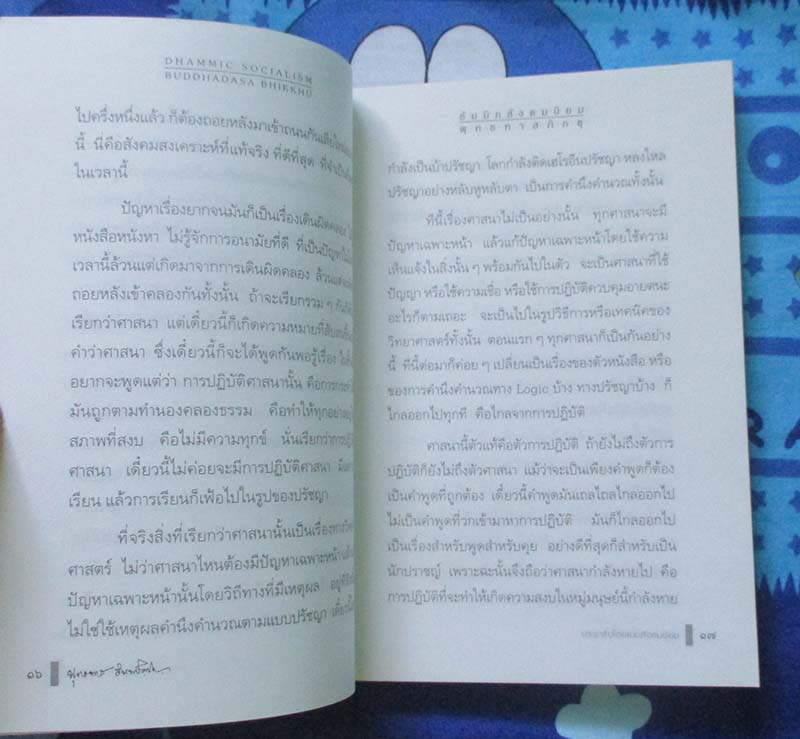 DHAMMIC SOCIALISM
BUDDHADASA BHIKKHU
ไปครึ่งหนึ่งแล้ว ก็ต้องถอยหลังมาเข้าถนนกันเสียใหม่
นี้ นี่คือสังคมสงเคราะห์ที่แท้จริง ที่ดีที่สุด ที่จำเป็น
ในเวลานี้
ปัญหาเรื่องยากจนมันก็เป็นเรื่องเดินผิดคลอง
หนังสือหนังหา ไม่รู้จักการอนามัยที่ดี ที่เป็นปัญหา
เวลานี้ล้วนแต่เกิดมาจากการเดินผิดคลอง ล้วนแต่
ถอยหลังเข้าคลองกันทั้งนั้น ถ้าจะเรียกรวม ๆ กัน
เรียกว่าศาสนา แต่เดี๋ยวนี้ก็เกิดความหมายที่สับสน
คำว่าศาสนา ซึ่งเดี๋ยวนี้ก็จะได้พูดกันพอรู้เรื่อง
อยากจะพูดแต่ว่า การปฏิบัติศาสนานั้น คือการกระทำ
มันถูกตามทำนองคลองธรรม คือทำให้ทุกอย่าง
สภาพที่สงบ คือไม่มีความทุกข์ นั่นเรียกว่าการปฏิบัติ
ศาสนา เดี๋ยวนี้ไม่ค่อยจะมีการปฏิบัติศาสนา
เรียน แล้วการเรียนก็เฟ้อไปในรูปของปรัชญา
ที่จริงสิ่งที่เรียกว่าศาสนานั้นเป็นเรื่องทางวิทยา
ศาสตร์ ไม่ว่าศาสนาไหนต้องมีปัญหาเฉพาะหน้า
ปัญหาเฉพาะหน้านั้นโดยวิถีทางที่มีเหตุผล
ไม่ใช่ใช้เหตุผลคำนึงคำนวณตามแบบปรัชญา เดี๋ยวนี้
๑๖
ธัมมิกสังคมนิยม
พุทธทาสภิกขุ
กำลังเป็นบ้าปรัชญา โลกกำลังติดเฮโรอีนปรัชญา หลงใหล
ปรัชญาอย่างหลับหูหลับตา เป็นการคำนึงคำนวณทั้งนั้น
ทีนี้เรื่องศาสนาไม่เป็นอย่างนั้น ทุกศาสนาจะมี
ปัญหาเฉพาะหน้า แล้วแก้ปัญหาเฉพาะหน้าโดยใช้ความ
เห็นแจ้งในสิ่งนั้น ๆ พร้อมกันไปในตัว จะเป็นศาสนาที่ใช้
ปัญญา หรือใช้ความเชื่อ หรือใช้การปฏิบัติควบคุมอายตนะ
อะไรก็ตามเถอะ จะเป็นไปในรูปวิธีการหรือเทคนิคของ
วิทยาศาสตร์ทั้งนั้น ตอนแรก ๆ ทุกศาสนาก็เป็นกันอย่าง
นี้ ทีนี้ต่อมาก็ค่อย ๆ เปลี่ยนเป็นเรื่องของตัวหนังสือ หรือ
ของการคำนึงคำนวณทาง Logic บ้าง ทางปรัชญาบ้าง ก็
ไกลออกไปทุกที คือไกลจากการปฏิบัติ
ศาสนานี้ตัวแท้คือตัวการปฏิบัติ ถ้ายังไม่ถึงตัวการ
ปฏิบัติก็ยังไม่ถึงตัวศาสนา แม้ว่าจะเป็นเพียงคำพูดก็ต้อง
เป็นคำพูดที่ถูกต้อง เดี๋ยวนี้คำพูดมันเถลไถลไกลออกไป
ไม่เป็นคำพูดที่วกเข้ามาหาการปฏิบัติ มันก็ไกลออกไป
เป็นเรื่องสำหรับพูดสำหรับคุย อย่างดีที่สุดก็สำหรับเป็น
นักปราชญ์ เพราะฉะนั้นจึงถือว่าศาสนากำลังหายไป คือ
การปฏิบัติที่จะทำให้เกิดความสงบในหมู่มนุษย์นี้กำลังหาย
๑๗